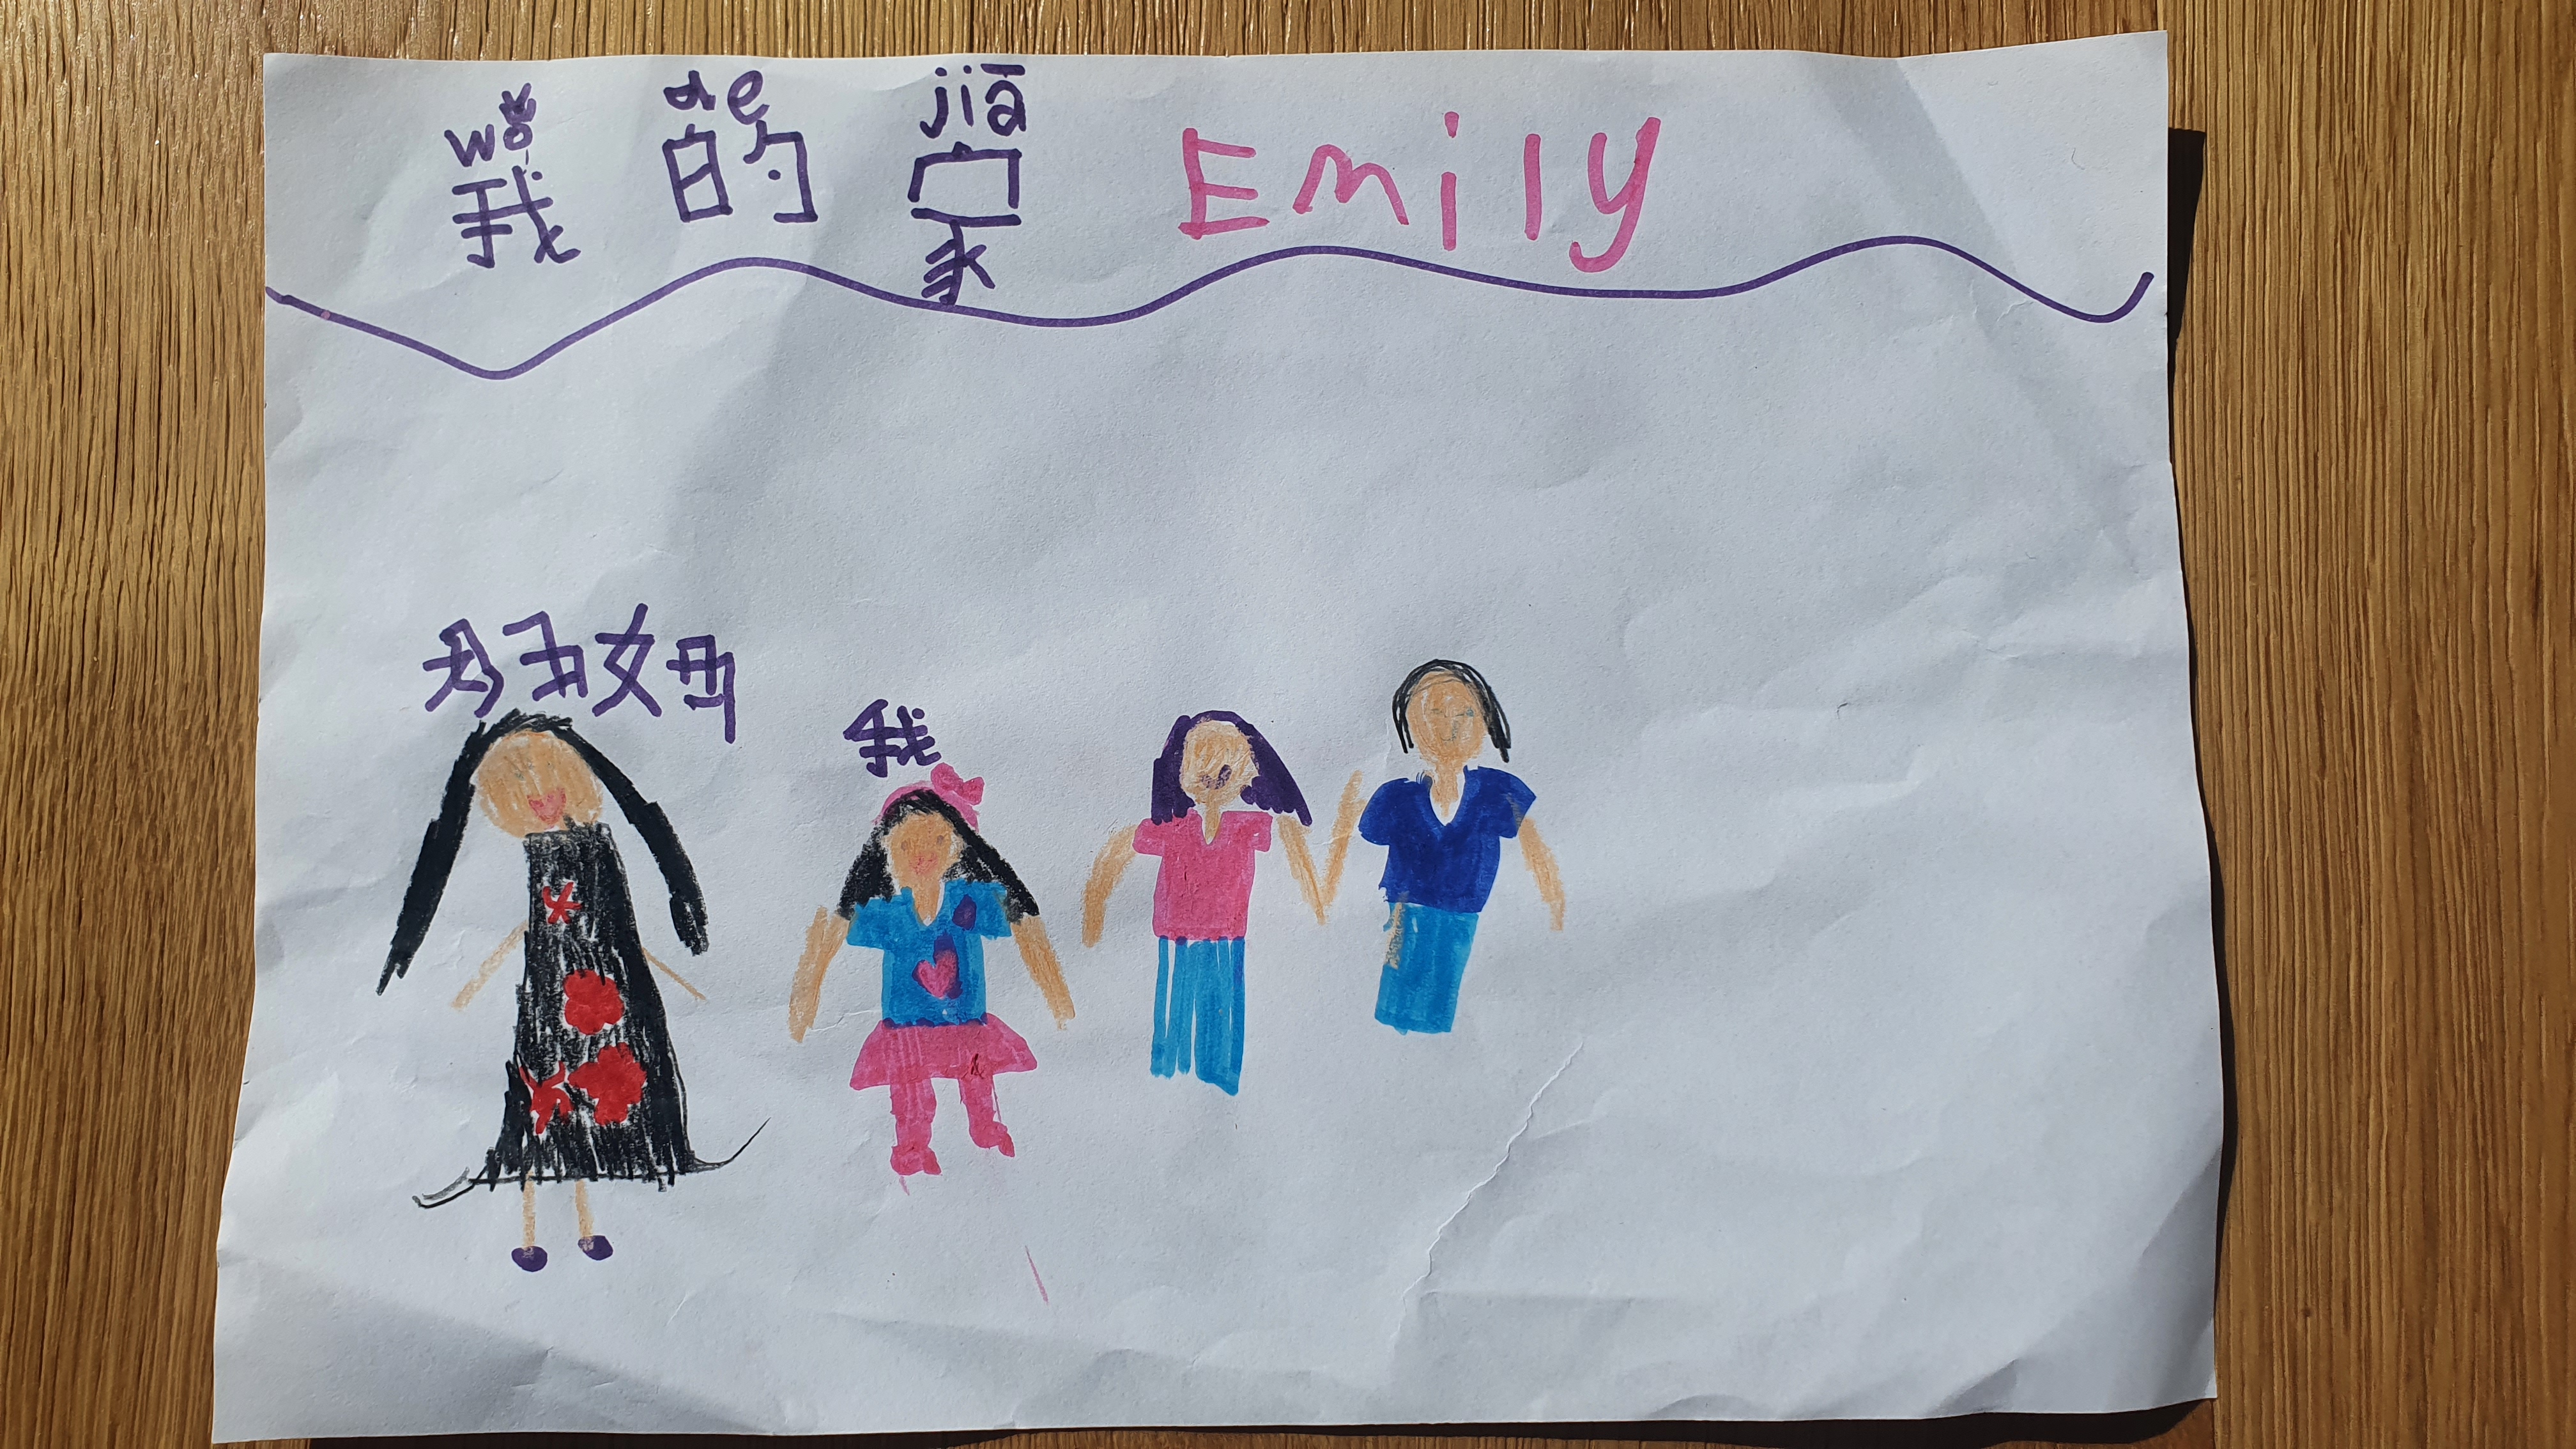 wǒ de jiā
我 的 家 Emily
妈妈
我